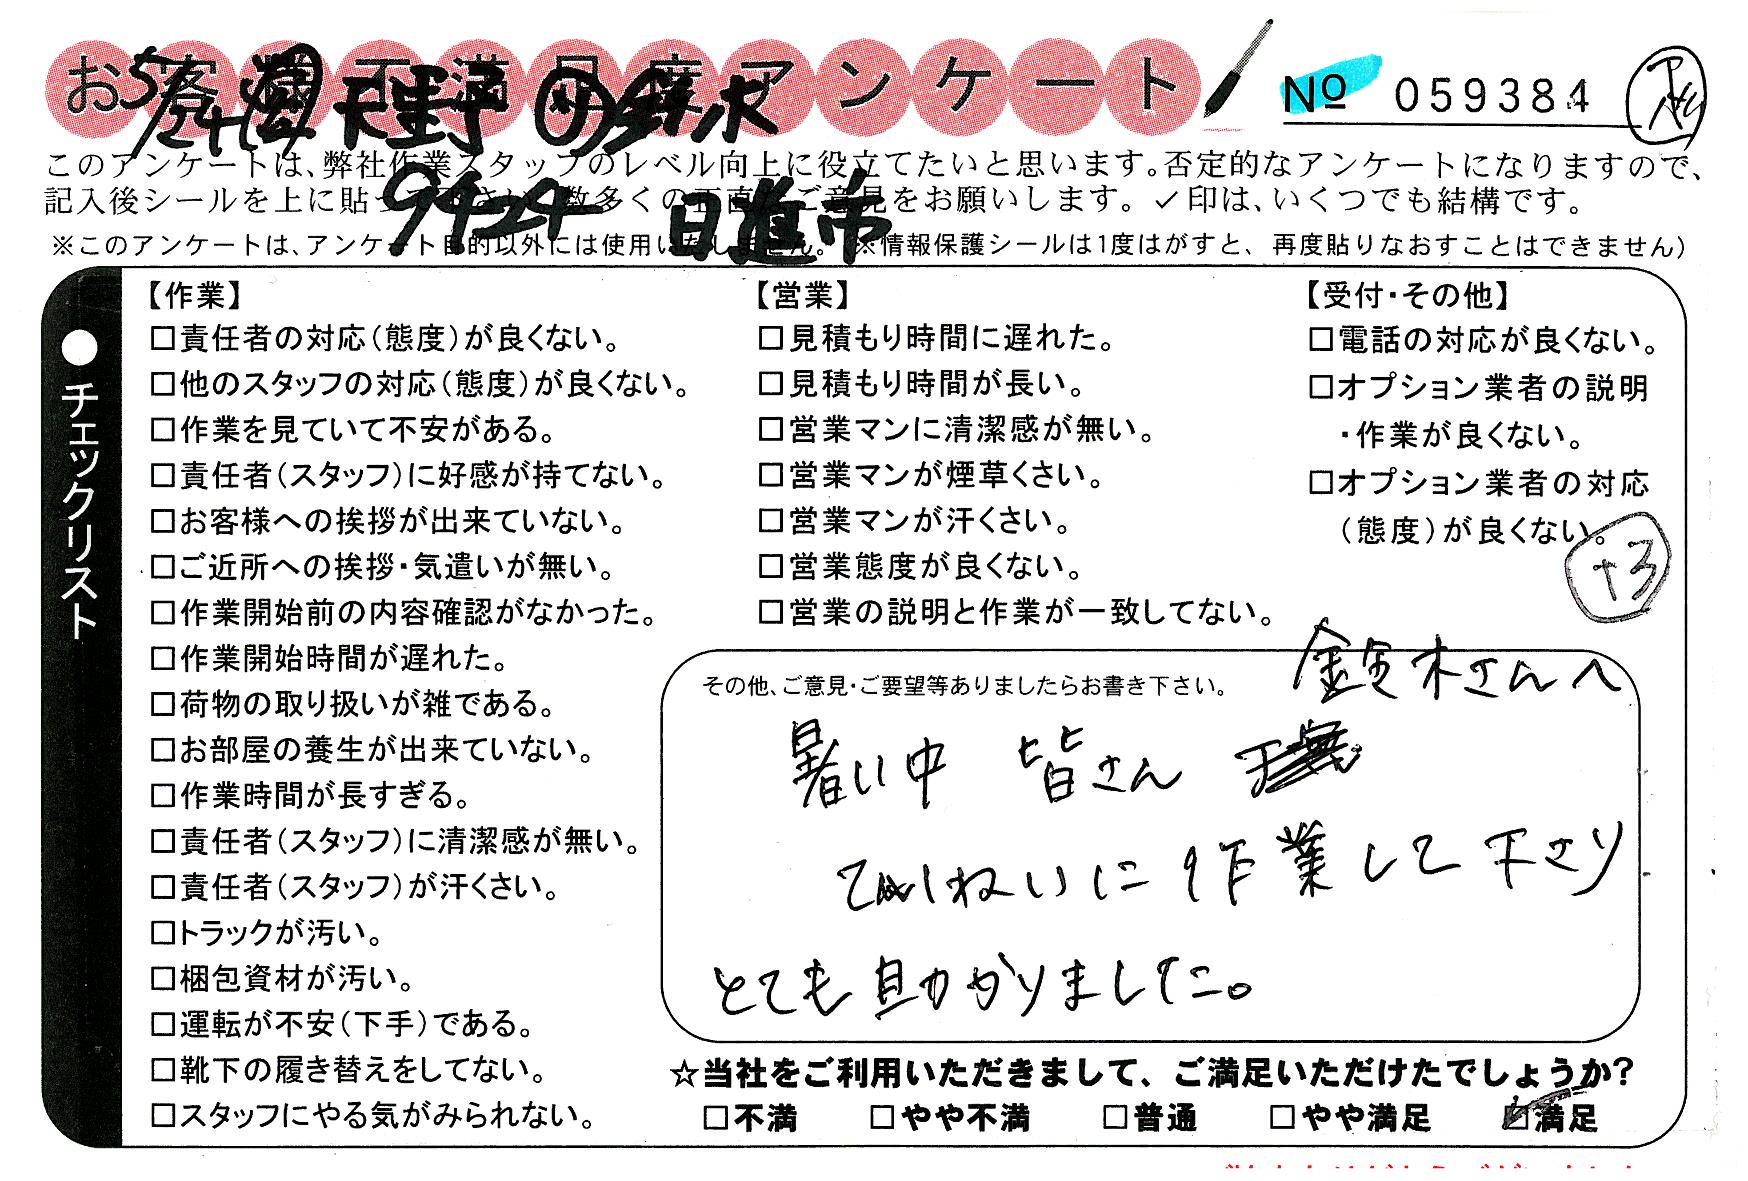 お客様不満足度アンケート
No 059384
天野
9424 日進市
このアンケートは、弊社作業スタッフのレベル向上に役立てたいと思います。否定的なアンケートになりますので、
記入後シールを上に貼って下さい。数多くの正直なご意見をお願いします。✓印は、いくつでも結構です。
※このアンケートは、アンケート目的以外には使用いたしません。(※情報保護シールは1度はがすと、再度貼りなおすことはできません)
●チェックリスト
【作業】
□責任者の対応(態度)が良くない。
□他のスタッフの対応(態度)が良くない。
□作業を見ていて不安がある。
□責任者(スタッフ)に好感が持てない。
□お客様への挨拶が出来ていない。
□ご近所への挨拶・気遣いが無い。
□作業開始前の内容確認がなかった。
□作業開始時間が遅れた。
□荷物の取り扱いが雑である。
□お部屋の養生が出来ていない。
□作業時間が長すぎる。
□責任者(スタッフ)に清潔感が無い。
□責任者(スタッフ)が汗くさい。
□トラックが汚い。
□梱包資材が汚い。
□運転が不安(下手)である。
□靴下の履き替えをしてない。
□スタッフにやる気がみられない。
【営業】
□見積もり時間に遅れた。
□見積もり時間が長い。
□営業マンに清潔感が無い。
□営業マンが煙草くさい。
□営業マンが汗くさい。
□営業態度が良くない。
□営業の説明と作業が一致してない。
【受付・その他】
□電話の対応が良くない。
□オプション業者の説明
・作業が良くない。
□オプション業者の対応
(態度)が良くない。
+3
その他、ご意見・ご要望等ありましたらお書き下さい。
鈴木さんへ
暑い中 皆さん
ていねいに作業して下さり
とても助かりました。
☆当社をご利用いただきまして、ご満足いただけたでしょうか?
□不満 □やや不満 □普通 □やや満足 ☑満足